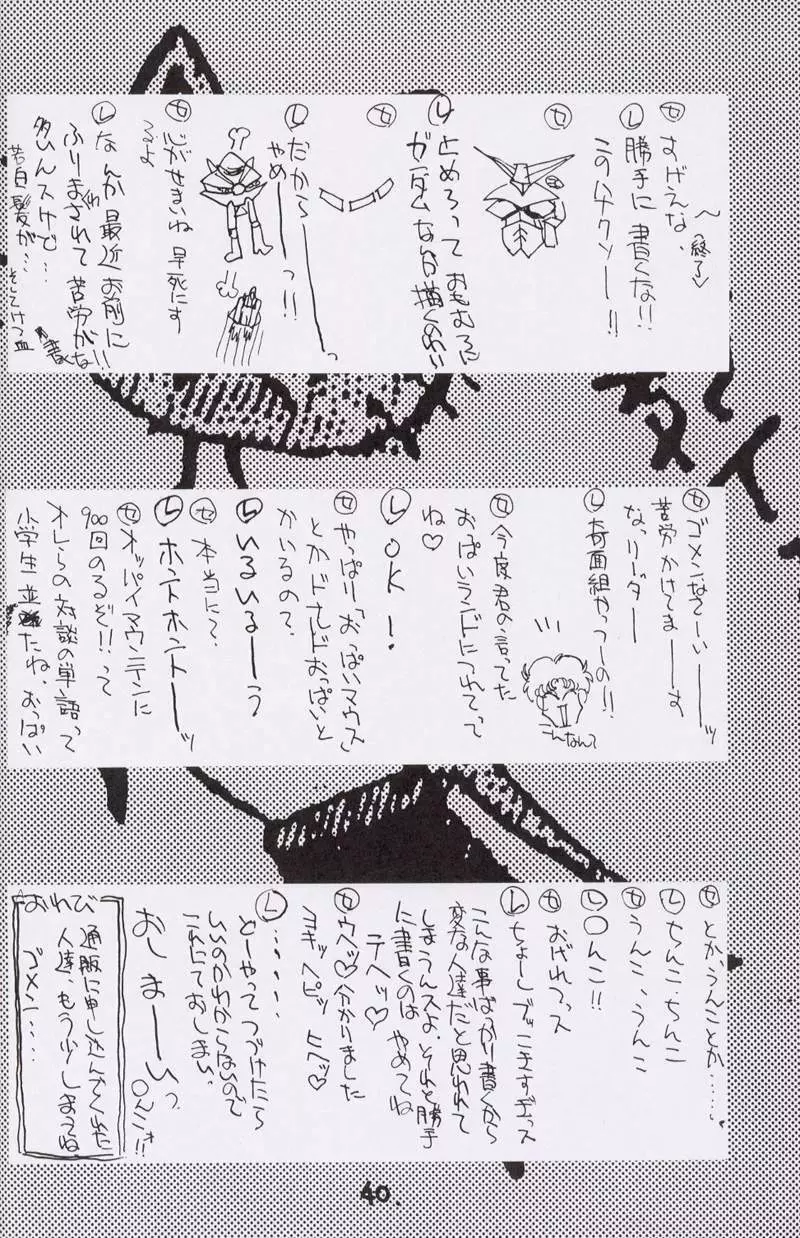 ㋝ すげえな、
〜終了♡
Ⓛ 勝手に書くな!!
このハナクソー!!
㋝
Ⓛ 止めろって おもむろに
ガンダムなんか描くのわい
㋝
Ⓛ だからーーーっ
やめーーっ!!
㋝ 心がせまいね 早死にす
るよ
Ⓛ なんか最近お前に!!
ふりまわされて苦労がな
多ひんスけで…
若白髪が…
そしてけつ血
㋝ ゴメンなさーいーーッ
苦労かけてまーーす
なっリーダー
Ⓛ 奇面組かっつーの!!
こんなんで
㋝ 今度君の言ってた
おっぱいランドにつれてって
ね♡
Ⓛ OK!
㋝ やっぱり「おっぱいマウス」
とかドナルドおっぱいと
かいるの?
Ⓛ いるいるーーう
㋝ 本当に?
Ⓛ ホントホントーーッ
㋝ オッパイマウンテンに
900回のるぞ!!って
オレらの対談の単語って
小学生並みだね、おっぱい
㋝ とかうんことか……
Ⓛ ちんこ・ちんこ
㋝ うんこ、うんこ
Ⓛ 〇んこ!!
㋝ おげれつっス
Ⓛ ちょーしブッこきすぎっス
こんな事ばっかり書くから
変な人達だと思われて
しまうんスよ、それと勝手
に書くのはやめてね
テヘッ♡
㋝ ウヘッ♡分かりました
ヨキッヘピッ ヒヘッ♡
Ⓛ ……
どーやってつづけたら
いいのかわからないので
これにておしまい、
おしまーいっ
〇んこ!!
おわび
通販に申し込んでくれた
人達、もう少しまってね
ゴメン…
40.